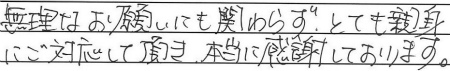 無理なお願いにも関わらず、とても親身
にご対応して頂き、本当に感謝しております。